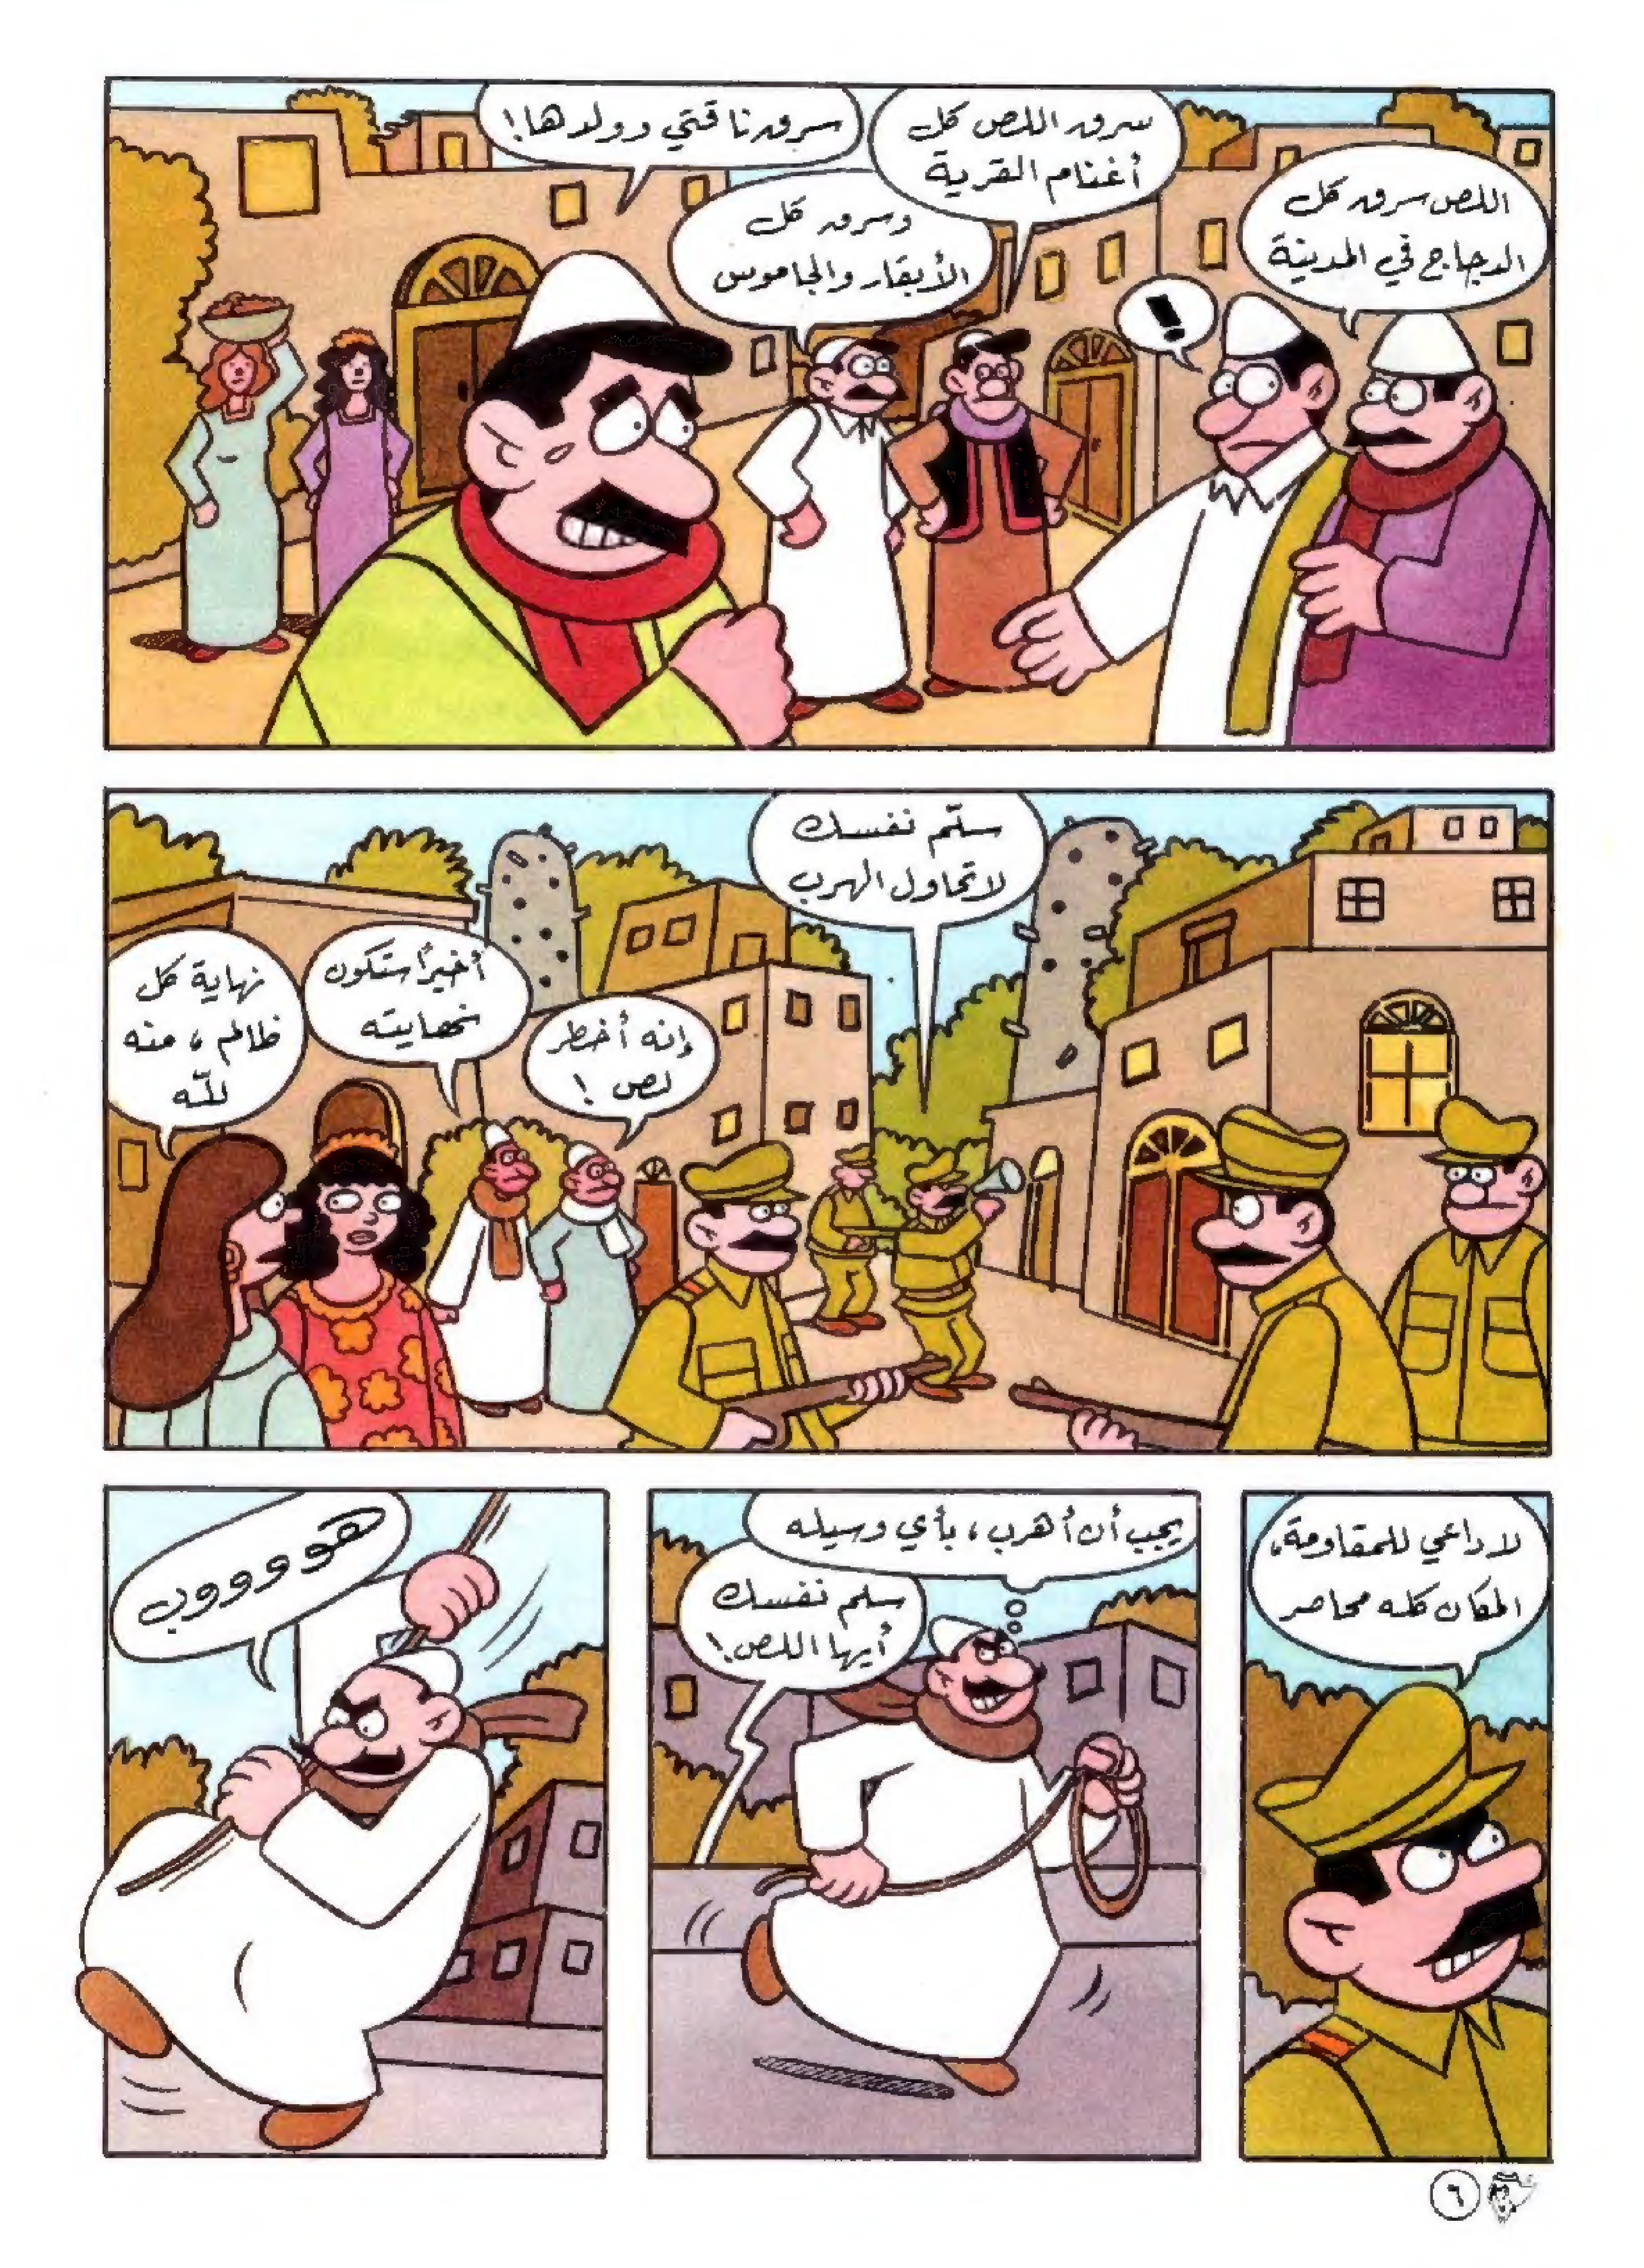 اللص سرق كل
الدجاج في المدينة
!
سرق اللص كل
أغنام القرية
وسرق كل
الأبقار والجاموس
سرق ناقتي وولدها!
سلّم نفسك
لا تحاول الهرب
إنه أخطر
لص!
أخيراً ستكون
نهايته
نهاية كل
ظالم، منه
للّه
لا داعي للمقاومة،
المكان كله محاصر
يجب أن أهرب، بأي وسيله
سلم نفسك
أيها اللص!
هوووووب
٦